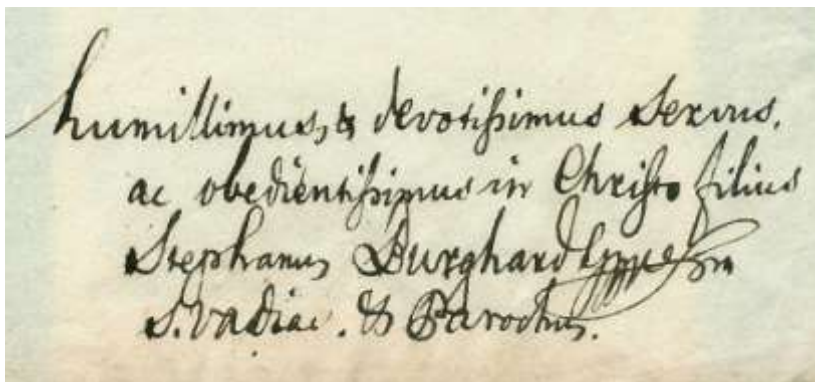 humillimus, & devotissimus servus.
ac obedientissimus in Christo filius
Stephanus Burghard
S. Vadiac. & Parochus.